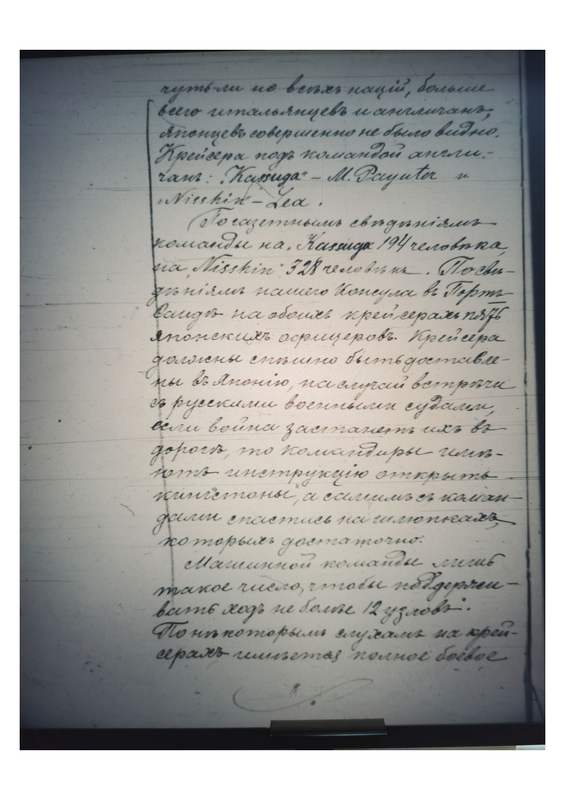 чуть ли не всѣхъ націй, больше
всего итальянцевъ и англичанъ,
японцевъ совершенно не было видно.
Крейсера подъ командой англи-
чанъ: „Касуга" – M. Paynter и
„Nisshin" – Lea.
По газетнымъ свѣдѣніямъ
команды на „Касуга 194 человѣка,
на „Nisshin" 328 человѣкъ. По свѣ-
дѣніямъ нашего Консула въ Портъ
Саидѣ на обоихъ крейсерахъ пять
японскихъ офицеровъ. Крейсера
должны спѣшно быть доставле-
ны въ Японію, на случай встрѣчи
съ русскими военными судами,
если война застанетъ ихъ въ
дорогѣ, то командиры имѣ-
ютъ инструкцію открыть
кингстоны, а самимъ съ коман-
дами спастись на шлюпкахъ,
которыхъ достаточно.
Машинной команды лишь
такое число, чтобы поддержи-
вать ходъ не болѣе 12 узловъ".
По нѣкоторымъ слухамъ на крей-
серахъ имѣется полное боевое